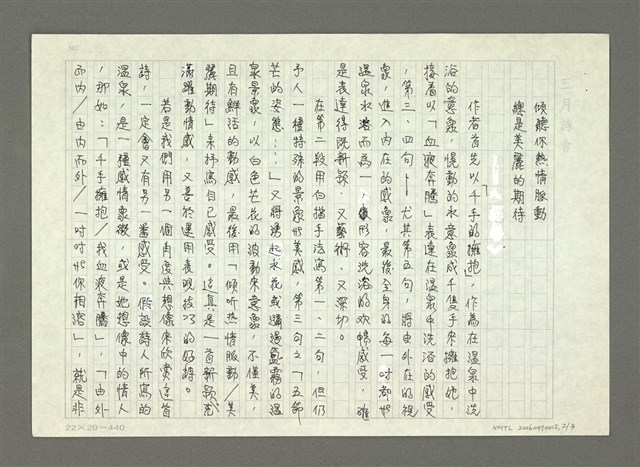 三月詩會
傾聽你熱情脈動
總是美麗的期待
作者首先以「千手的擁抱」，作為在溫泉中洗
浴的意象，慢動的水意象成千隻手來擁抱她，
接着以「血液奔騰」表達在溫泉中洗浴的感受
，第三、四句——尤其第五句，將由外在的視
象，進入內在的感象，最後全身的每一吋都和
溫泉水溶而為一，形容洗浴的歡暢感受，確
是表達得既新穎、又藝術、又深切。
在第二段用白描手法寫第一、二句，但仍
予人一種特殊的景象和美感，第三句之「五節
芒的姿態⋯」又將湧起水花或
泉景象，以白色芒花的波動來意象，不僅美，
且有鮮活的動感，最後用「傾听热情脈動／美
麗期待」來抒寫自已感受。這真是一首新穎充
滿躍動情感，又善於運用表現技巧的好詩。
若是我們用另一個角度與想像來欣賞這首
詩，一定會又有另一番感受。假設詩人所寫的
溫泉，是一種感情象徵，或是她想像中的情人
，那如：「千手擁抱／我血液奔騰」，「由外
而內／由內而外／一吋吋和你相溶」，就是非
22×20＝440
NMTL 20060490012, 2/3